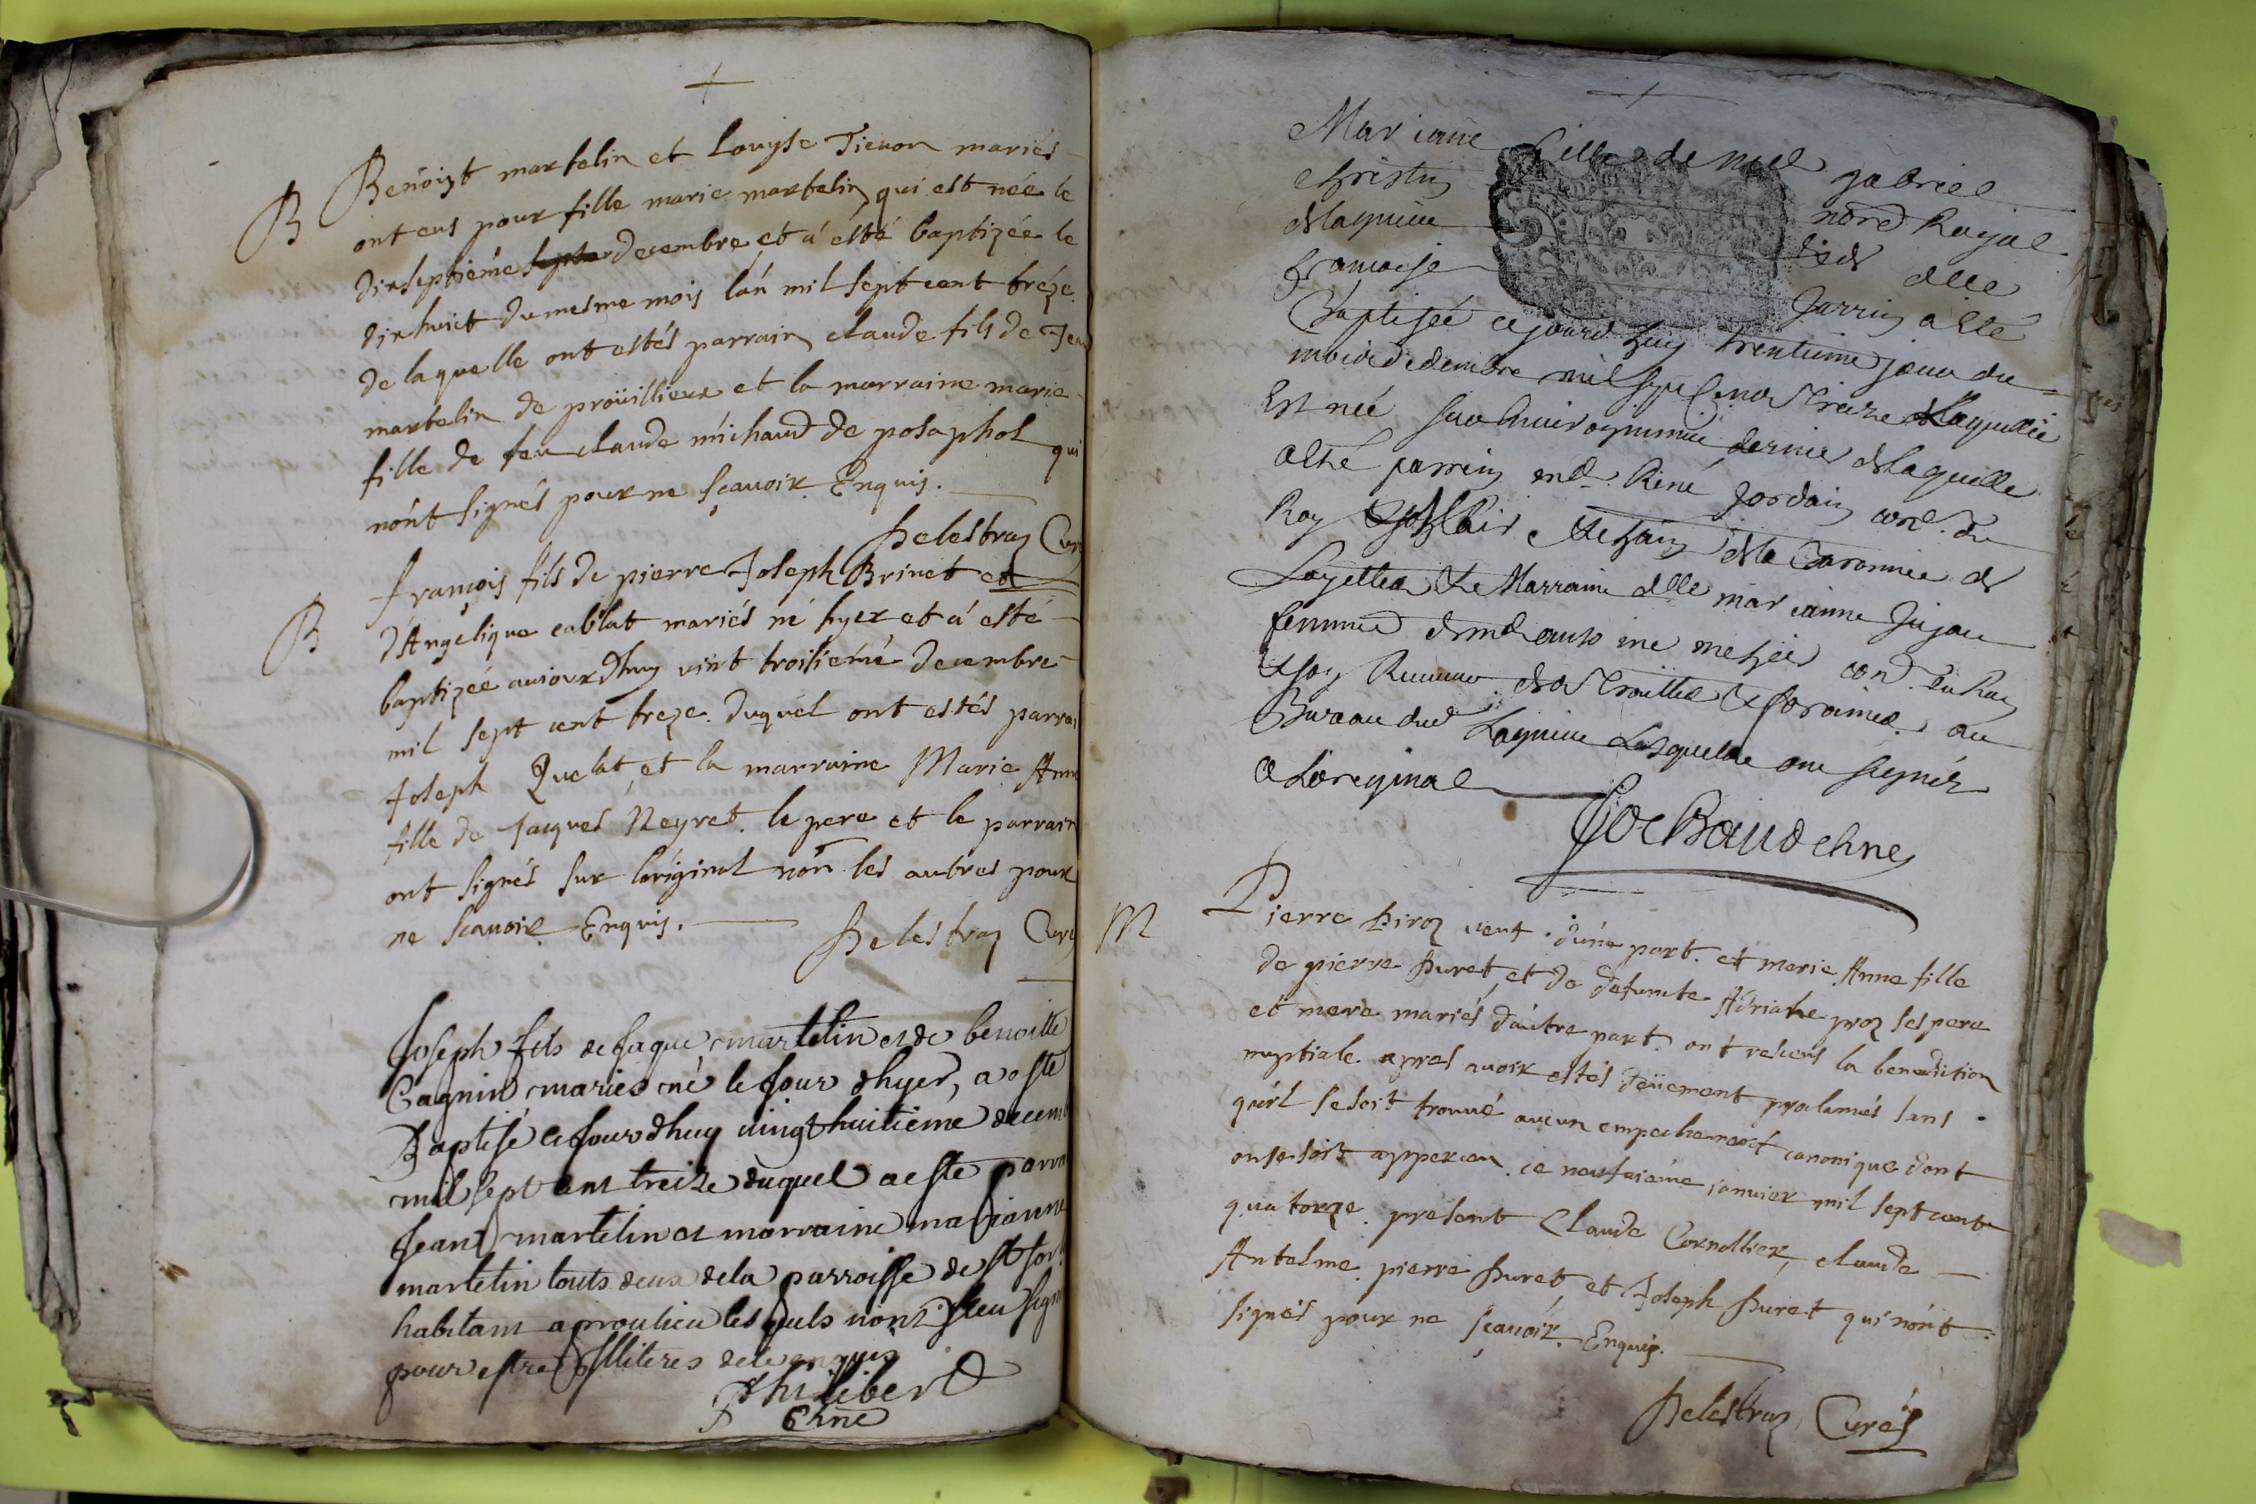 B
Benoist martelin et Louyse Tievon mariés
ont eus pour fille marie martelin qui est née le
dixseptiéme decembre et á esté baptizée le
dixhuict du mesme mois lán mil sept cent tréze.
de laquelle ont estés parrain claude fils de Jean
martelin de proüillieux et la marraine marie
fille de feu claude michaud de posaphol qui
nónt signés pour ne sçavoir Enquis.
Delestraz Curé
B
françois fils de pierre Joseph Brinet et
dÁngelique cablat mariés né hyer et á esté
baptizée aujourdhuy vint troisiémé decembre
mil sept cent treze. duquel ont estés parrain
Joseph Quelat, et la marraine Marie Anne
fille de Jacques Neyret. le pere et le parrain
ont signés sur lóriginal nón les autres pour
ne sçavoir Enquis.
Delestraz Curé
Joseph fils de Jaque martelin et de benoitte
Gagnin mariés né le Jour dhyer, a este
Baptisé ce Jourdhuy vingt huitiéme decemb
mil sept cent treize duquel a este parra
Jean martelin et marraine marianne
martelin touts deux de la parroisse de St Sor
habitant a proulieu lesquels nont sceu signé
pour estre Illiteres de ce enquis
Philibert
Chne
Marianne fille de noel gabriel
christin nore Royal
de lagnieu delle
francoise Jarrin a esté
Baptisée ce jourdhuy trentieme jour du
mois de decembre mil sept cent treize Laquelle
Est née de laquelle
a esté parrein René Jordain con. du
Roy de la Baronnie de
Loyettes & Marraine delle marianne Jujau
femme con. du Roy
& son Receveur des traittes & foraines au
Bureau dud Lagnieu Lesquels ont signés
a Loriginal
Baud chne
M
Pierre Diroz veut. dúne part. et marie Anne fille
de pierre Duret, et de defuncte Adriane proz ses pere
et mere mariés dáutre part. ont receus la benediction
nuptiale apres avoir estés deüement proclamés sans
quíl se soit trouvé aucun empechement canonique dont
on se soit apperceu. ce neufuiéme janvier mil sept cent
quatorze. present Claude Cornollier, claude
Antelme. pierre Duret, et Joseph Duret qui nónt
signés pour ne sçavoir. Enquis.
Delestraz Curés